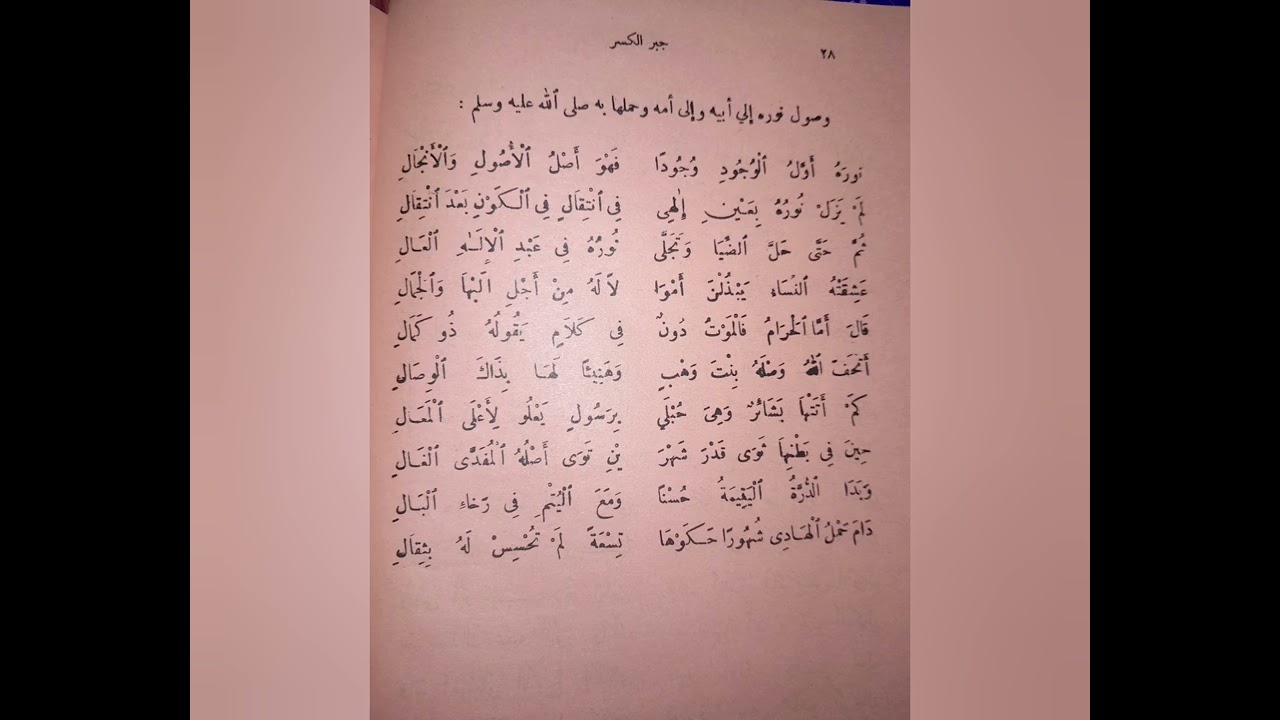 ٢٨ جبر الكسر
وصول نوره إلي أبيه وإلى أمه وحملها به صلى الله عليه وسلم :
نورهُ أَوَّلُ الْوُجُودِ وُجُودًا فَهْوَ أَصْلُ الْأُصُولِ وَالْأَنْجَالِ
لَمْ يَزَلْ نُورُهُ بِعَيْنِ إِلٰهِى فِى ٱنْتِقَالٍ فِى الْكَوْنِ بَعْدَ انْتِقَالِ
ثُمَّ حَتَّى حَلَّ الضِّيَا وَتَجَلَّى نُورُهُ فِى عَبْدِ الْإِلٰهِ الْعَالِ
عَشِقَتْهُ النِّسَاءُ يَبْذُلْنَ أَمْوَا لاً لَهُ مِنْ أَجْلِ الْبَهَا وَالْجَمَالِ
قَالَ أَمَّا الْحَرَامُ فَالْمَوْتُ دُونٌ فِى كَلَامٍ يَقُولُهُ ذُو كَمَالِ
أَتْحَفَ اللهُ وَصْلَهُ بِنْتَ وَهْبٍ وَهَنِيئًا لَهَا بِذَاكَ الْوِصَالِ
كَمْ أَتَتْهَا بَشَائِرٌ وَهِىَ حُبْلَي بِرَسُولٍ يَعْلُو لِأَعْلَى الْمَعَالِ
حِينَ فِى بَطْنِهَا ثَوَى قَدْرَ شَهْرَ يْنِ تَوَى أَصْلُهُ الْمُفَدَّى الْغَالِ
وَبَدَا الدُّرَّةُ الْيَتِيمَةُ حُسْنًا وَمَعَ الْيُتْمِ فِى رَخَاءِ الْبَالِ
دَامَ حَمْلُ الْهَادِى شُهُورًا حَكَوْهَا تِسْعَةً لَمْ تُحْسِسْ لَهُ بِثِقَالِ